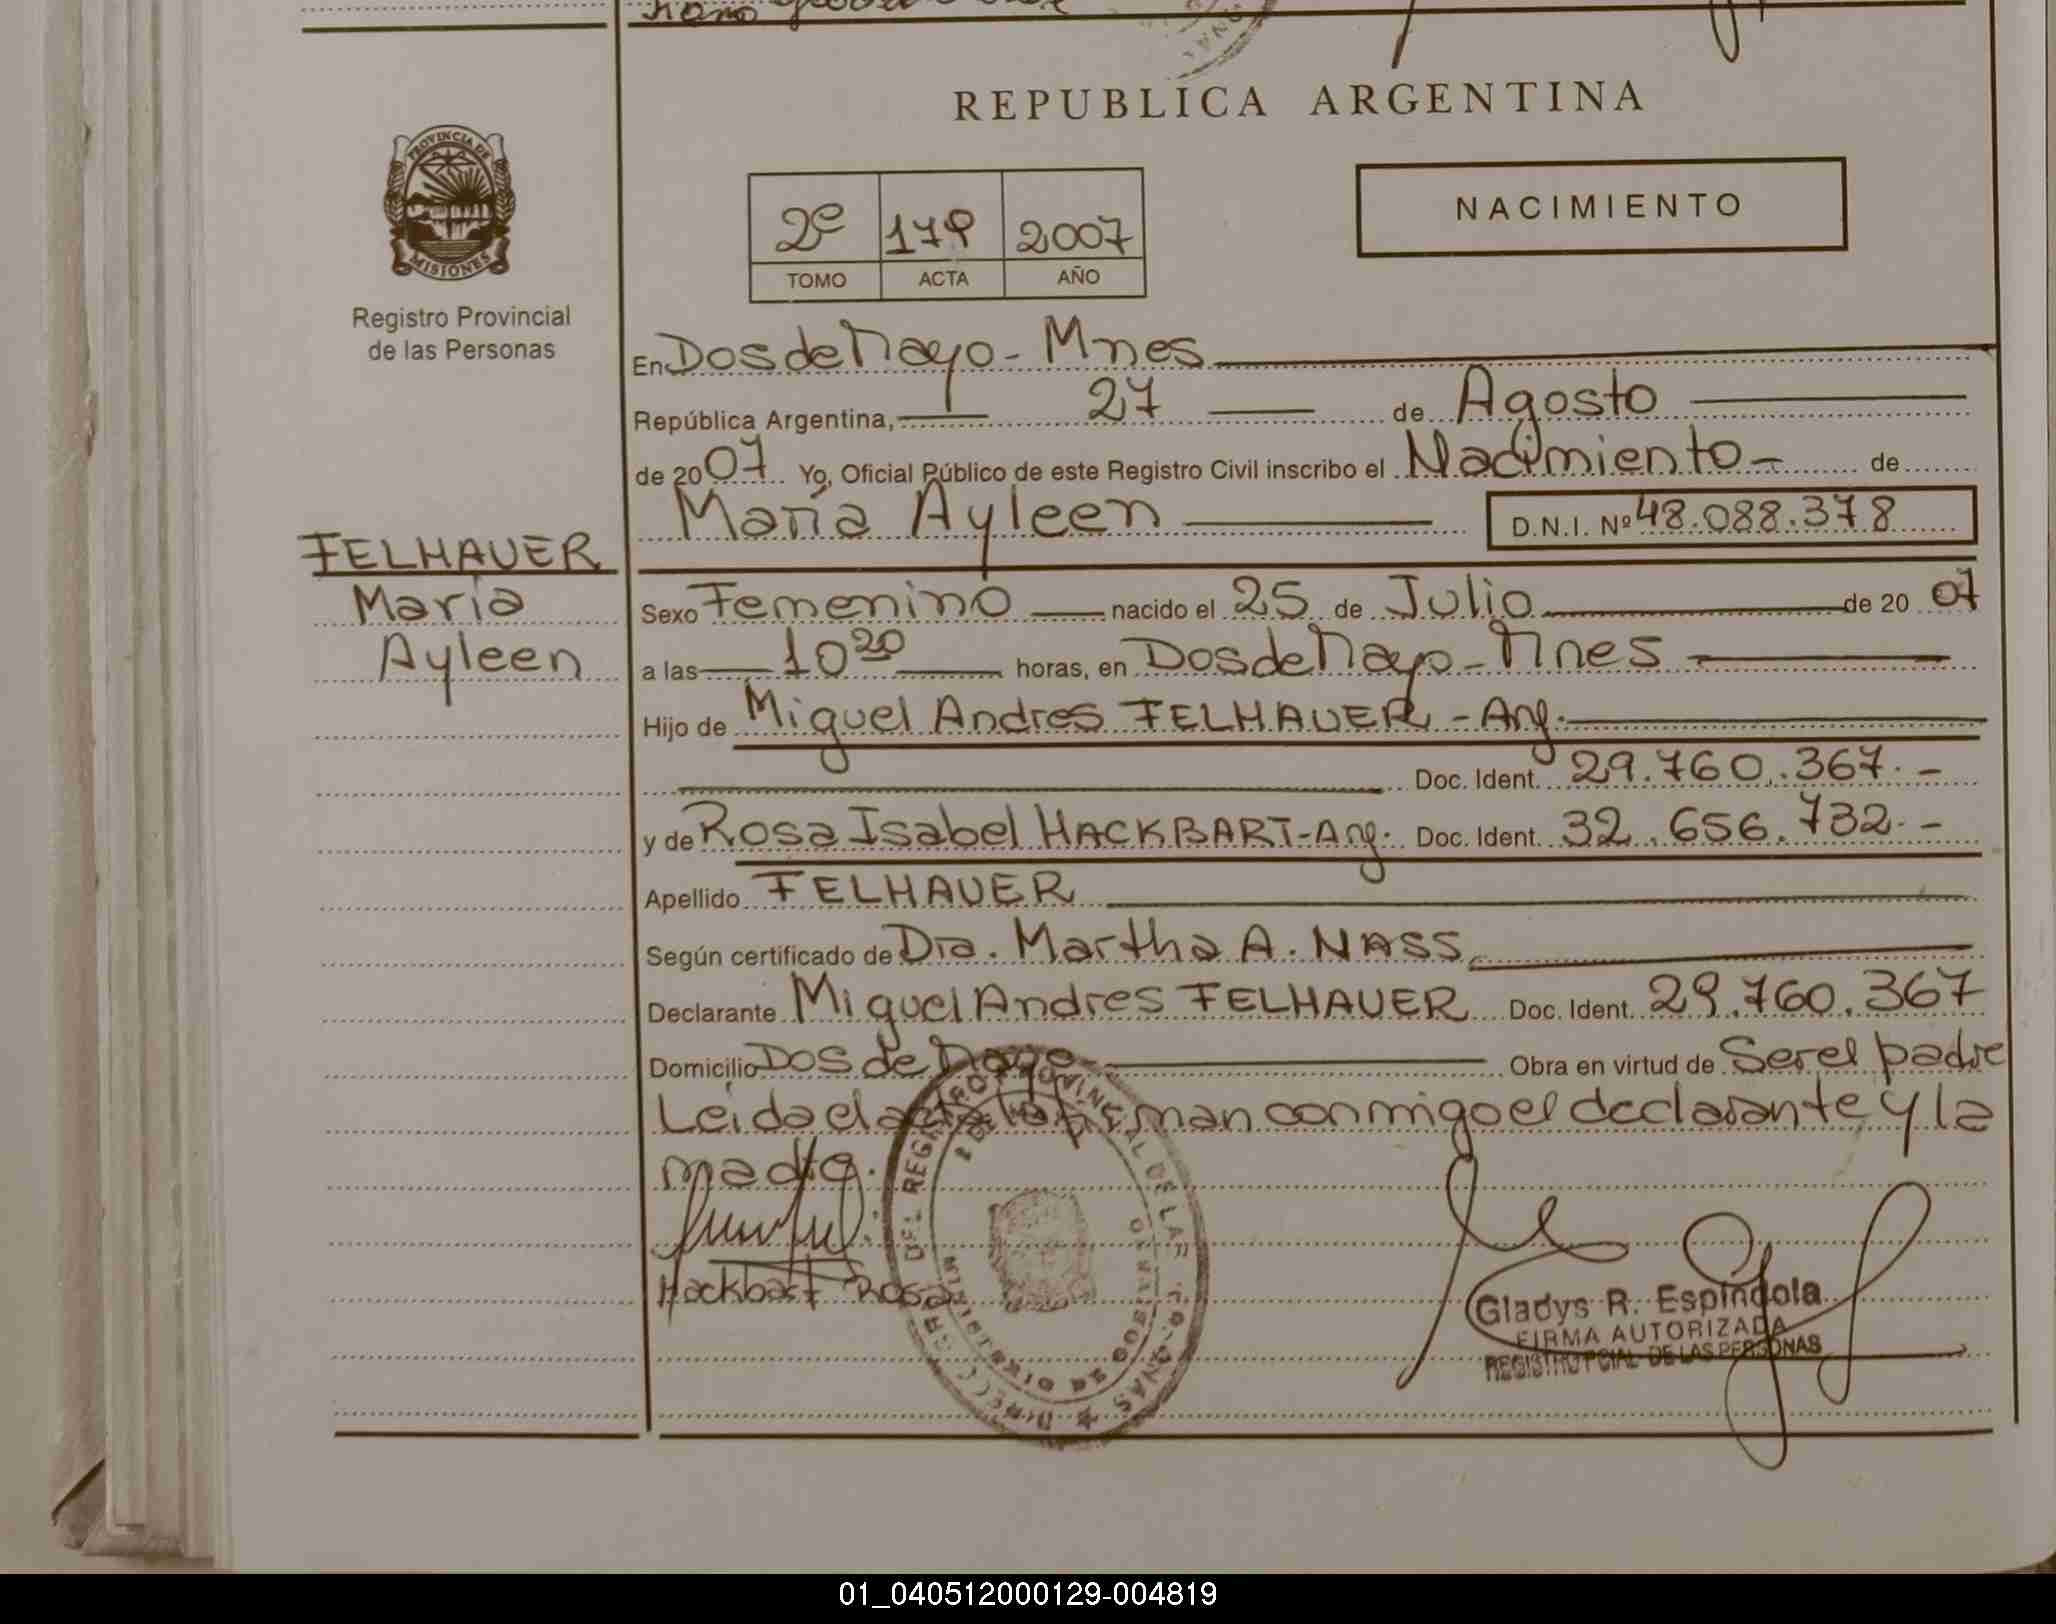 REPUBLICA ARGENTINA
PROVINCIA DE
MISIONES
Registro Provincial
de las Personas
NACIMIENTO
2º 179 2007
TOMO ACTA AÑO
En Dos de Mayo - Mnes
República Argentina, 27 de Agosto
de 2007 Yo, Oficial Público de este Registro Civil inscribo el Nacimiento - de
María Ayleen D.N.I. Nº 48.088.378
FELHAUER
María
Ayleen
Sexo Femenino nacido el 25 de Julio de 2007
a las 10 20 horas, en Dos de Mayo - Mnes
Hijo de Miguel Andres FELHAUER - Arg.
Doc. Ident. 29.760.367.-
y de Rosa Isabel HACKBART - Arg. Doc. Ident. 32.656.732.-
Apellido FELHAUER
Según certificado de Dra. Martha A. NASS
Declarante Miguel Andres FELHAUER Doc. Ident. 29.760.367
Domicilio Dos de Mayo Obra en virtud de Ser el padre
Leida el acta la firman conmigo el declarante y la
madre.
Hackbart Rosa
Gladys R. Espindola
FIRMA AUTORIZADA
REGISTRO PCIAL DE LAS PERSONAS
01_040512000129-004819